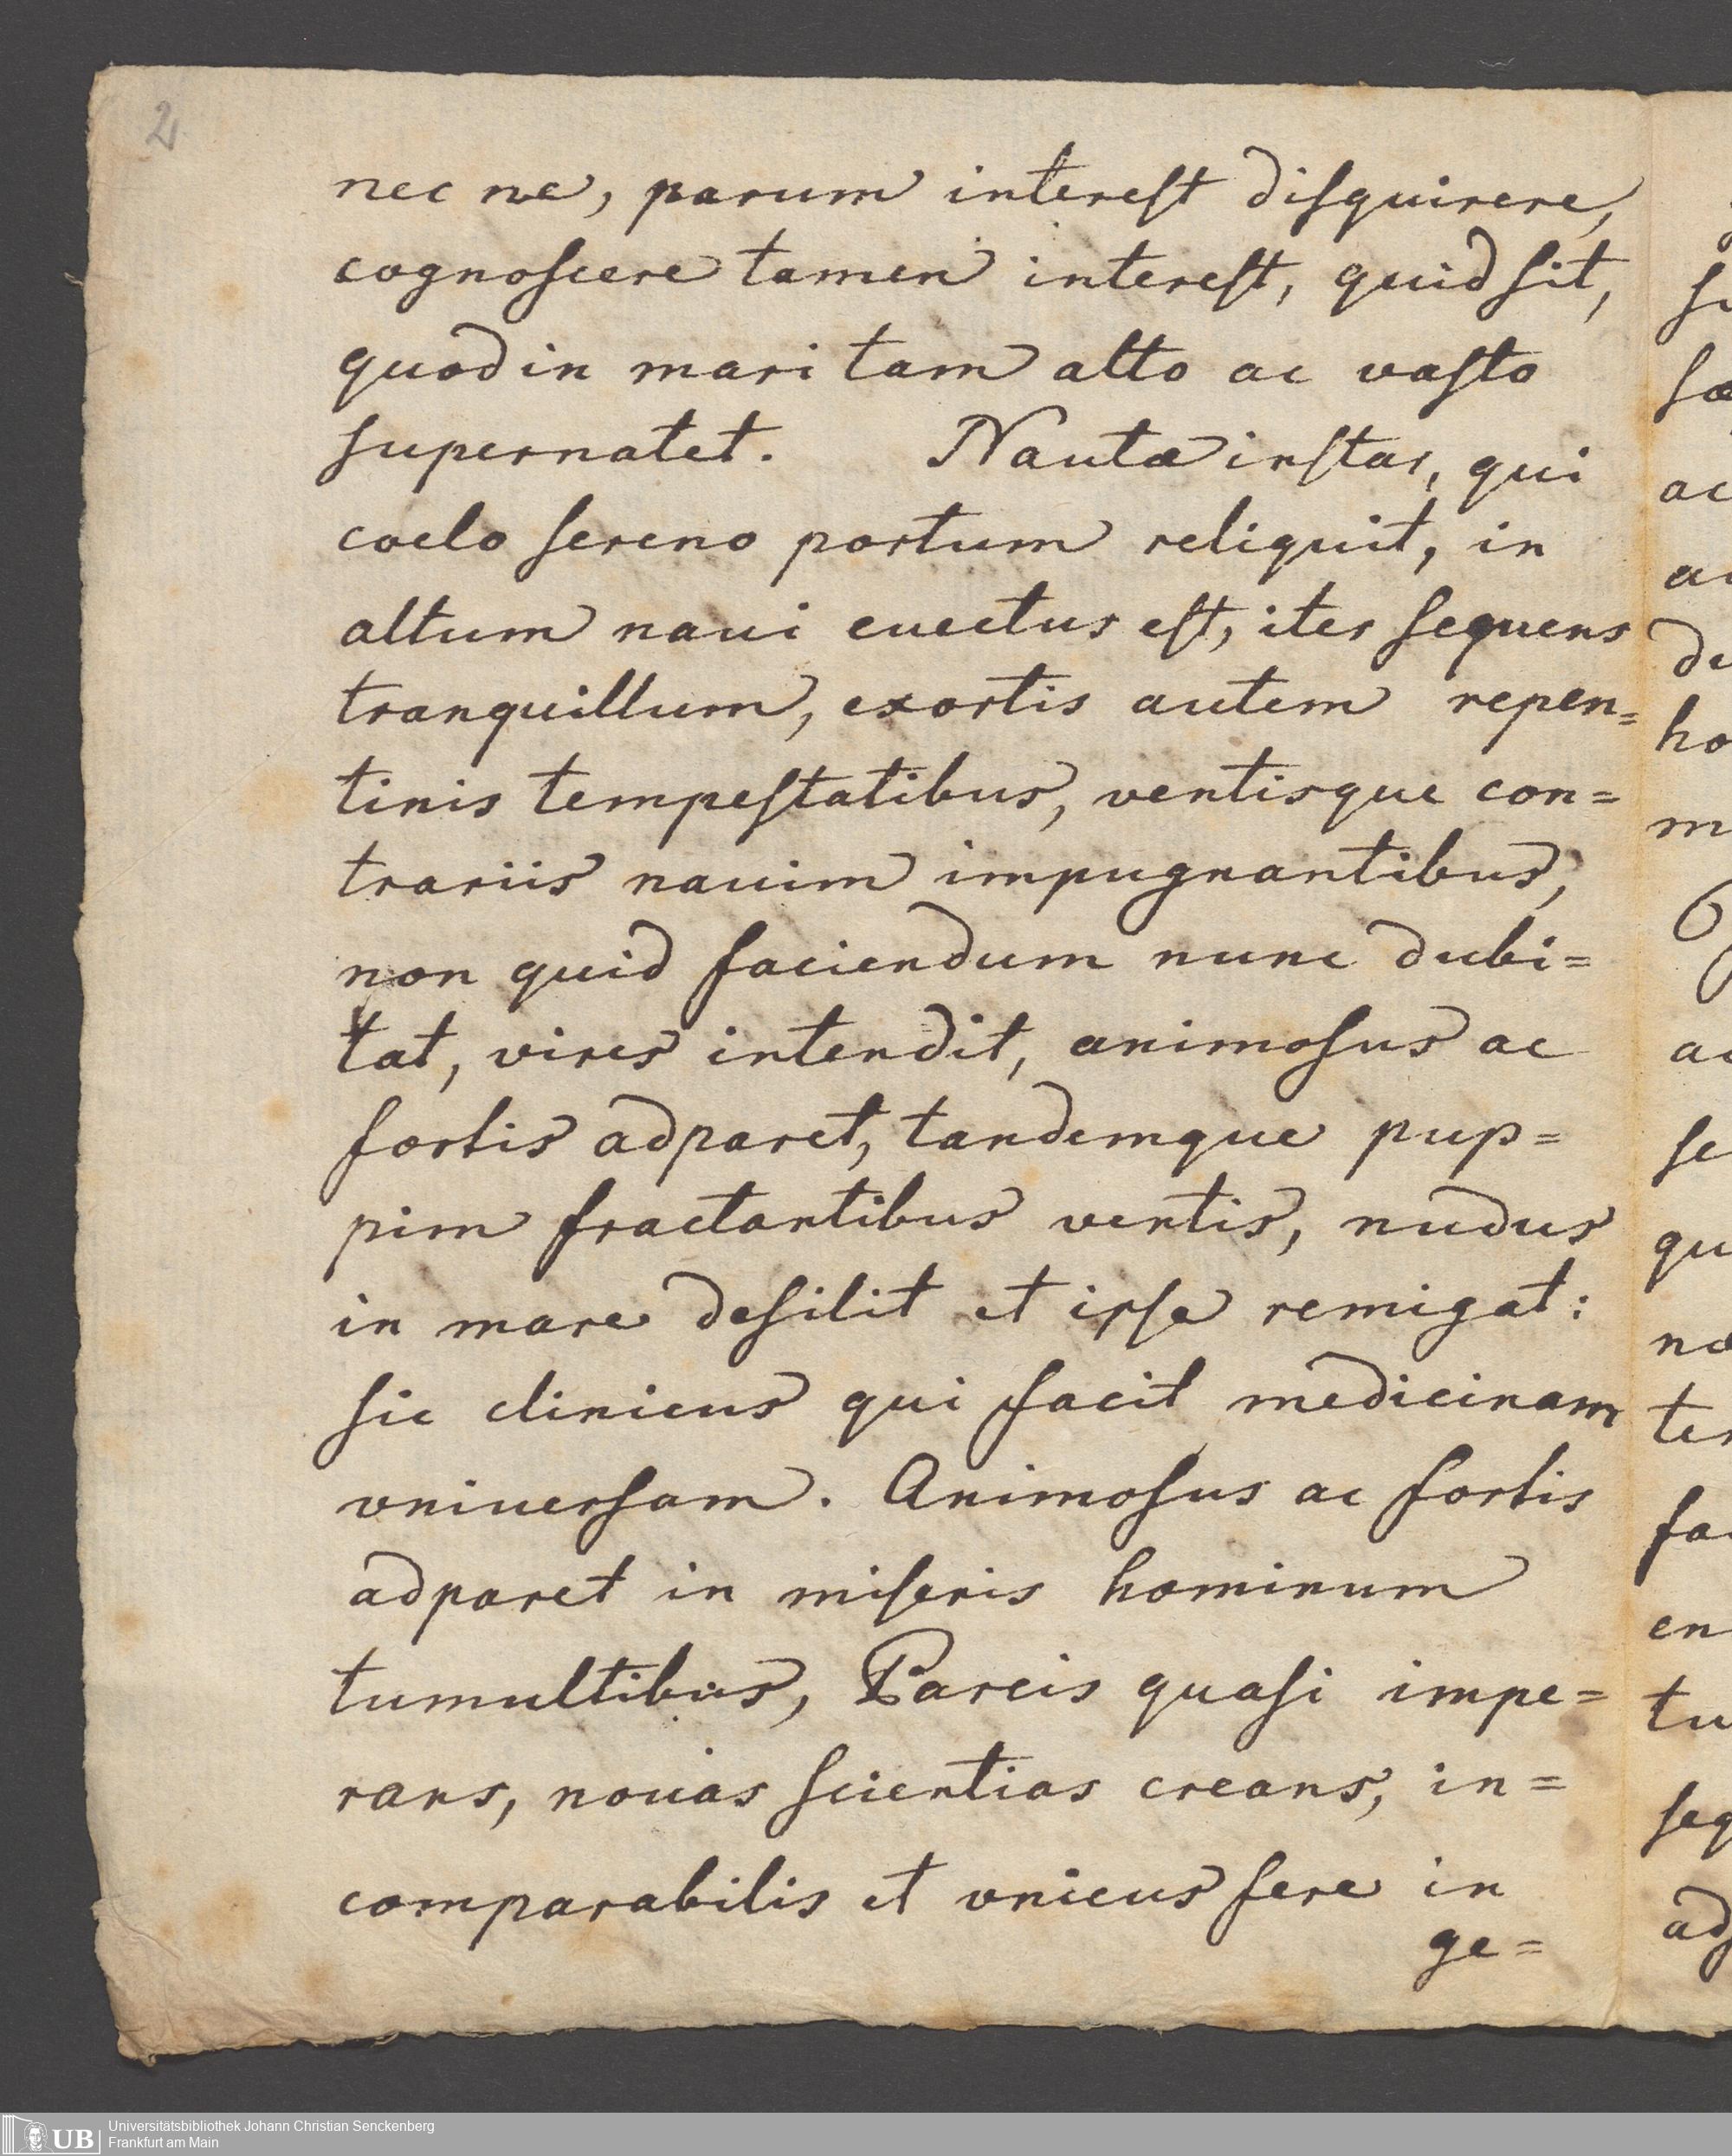 2
nec ne, parum interest disquirere,
cognoscere tamen interest, quid sit,
quod in mari tam alto ac vasto
supernatet. Nautæ instar, qui
coelo sereno portum reliquit, in
altum naui euectus est, iter sequens
tranquillum, exortis autem repen=
tinis tempestatibus, ventisque con=
trariis nauim impugnantibus,
non quid faciendum nunc dubi=
tat, vires intendit, animosus ac
fortis adparet, tandemque pup=
pim fractantibus ventis, nudus
in mare desilit et ipse remigat:
sic clinicus qui facit medicinam
vniuersam. Animosus ac fortis
adparet in miseris hominum
tumultibus, Parcis quasi impe=
rans, nouas scientias creans, in=
comparabilis et vnicus fere in
ge=
UB Universitätsbibliothek Johann Christian Senckenberg
Frankfurt am Main